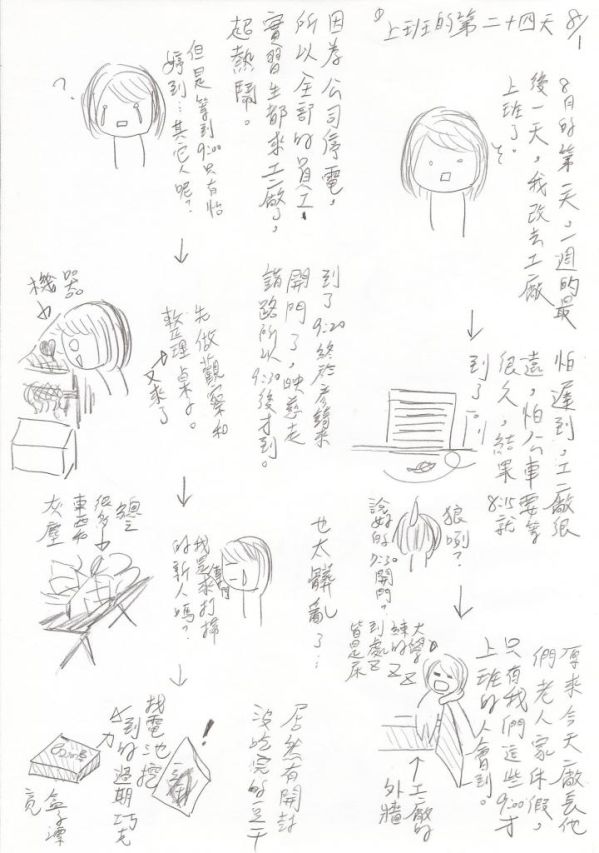 上班的第二十四天 8/1
8月的第一天,一週的最
後一天,我改去工廠
上班了。
怕遲到,工廠很
遠,怕公車要等
很久,結果8:15就
到了
狼咧?
說好的9:30開門?
原來今天廠長他
們老人家休假,
只有我們這些9:00才
上班的人會到。
大學
練的
到處
皆是床
ZZZ
工廠的
外牆
因為公司停電,
所以全部的員工,
實習生都來工廠了,
超熱鬧。
但是等到9:00只有怡
婷到…其它人呢?
?
到了9:20終於彥緯來
開門了,映慈走
錯路所以9:30後才到。
先做觀察和
整理桌子。
又來了
機器
也太髒亂了…
我是來打掃
的新人嗎?
總
很多
東西和
灰塵
居然有開封
沒吃完的豆干
!
找電池挖
到的過期巧克
力
盒子漂
亮